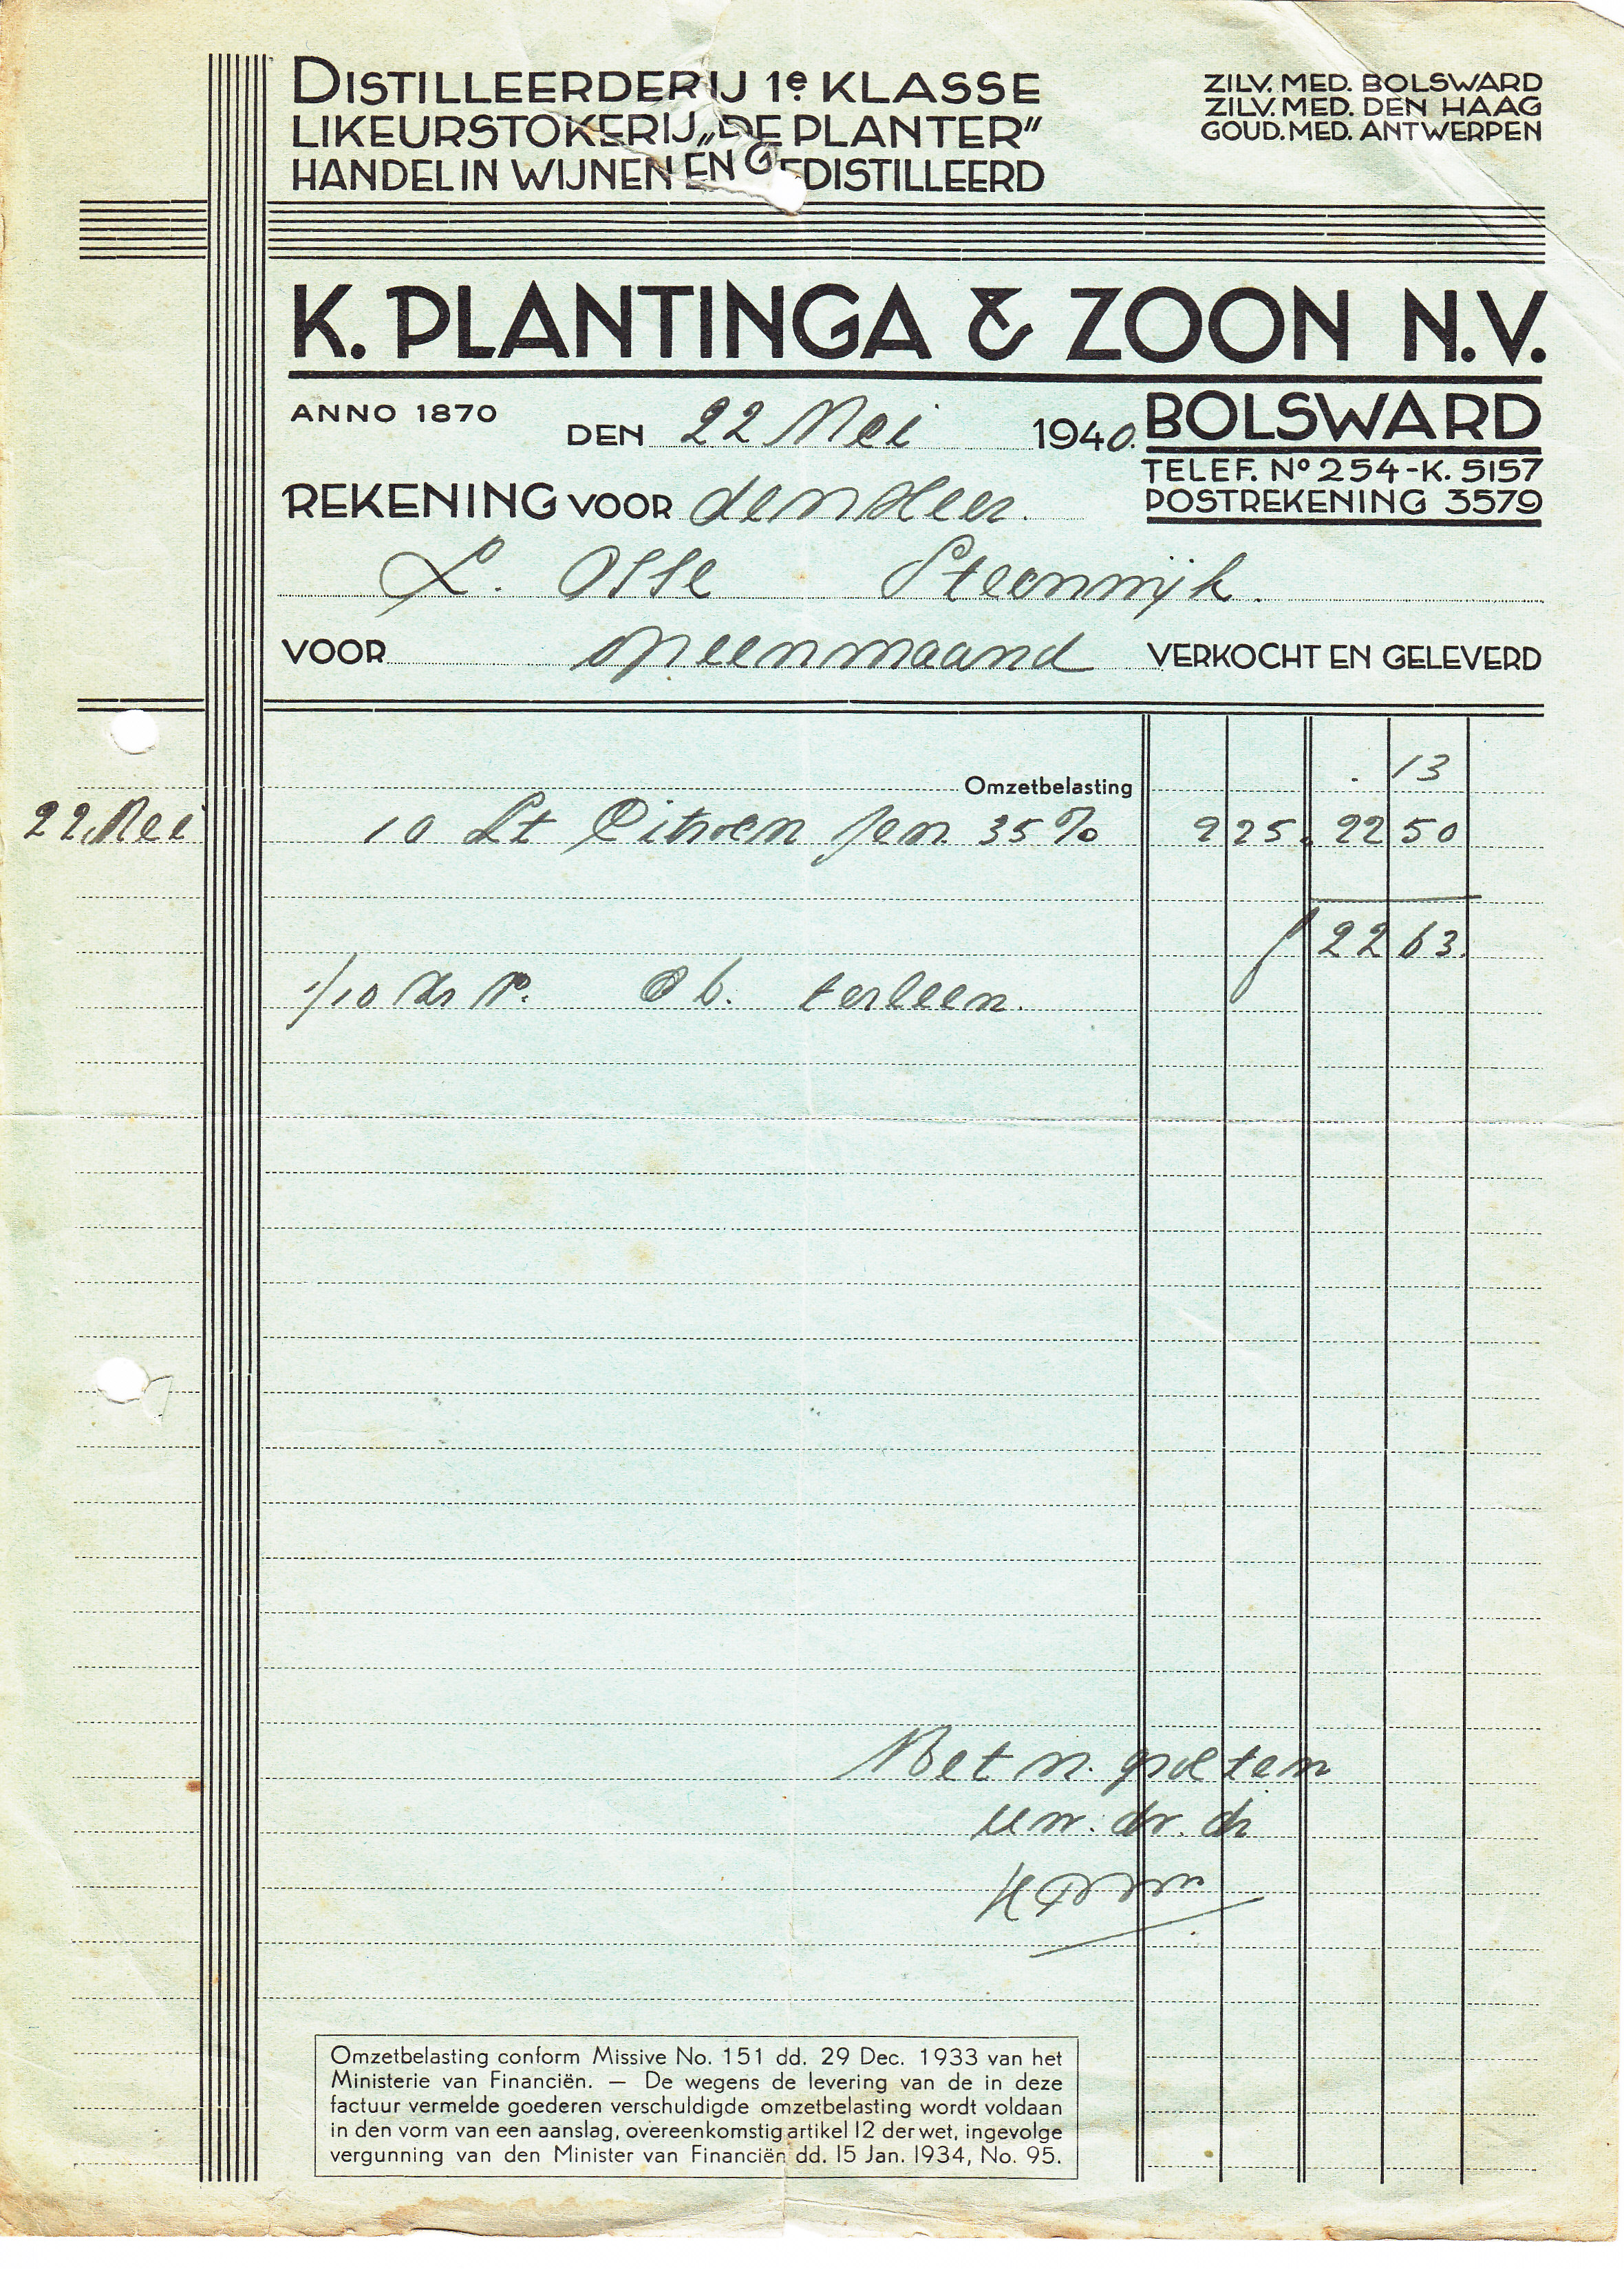 DISTILLEERDERIJ 1e KLASSE
LIKEURSTOKERIJ „DE PLANTER”
HANDEL IN WIJNEN EN GEDISTILLEERD
ZILV. MED. BOLSWARD
ZILV. MED. DEN HAAG
GOUD. MED. ANTWERPEN
K. PLANTINGA & ZOON N.V.
ANNO 1870
DEN 22 Mei 1940.
BOLSWARD
TELEF. No 254-K. 5157
POSTREKENING 3579
REKENING VOOR den Heer.
L. Osse Steenwijk.
VOOR op eenmaand VERKOCHT EN GELEVERD
Omzetbelasting . 13
22 Mei 10 Lt Citroen Jen 35% 2 25. 22 50
f 22 63.
1/10 terleen.
Met n. groeten
uw. dr. dr
Omzetbelasting conform Missive No. 151 dd. 29 Dec. 1933 van het
Ministerie van Financiën. — De wegens de levering van de in deze
factuur vermelde goederen verschuldigde omzetbelasting wordt voldaan
in den vorm van een aanslag, overeenkomstig artikel 12 der wet, ingevolge
vergunning van den Minister van Financiën dd. 15 Jan. 1934, No. 95.